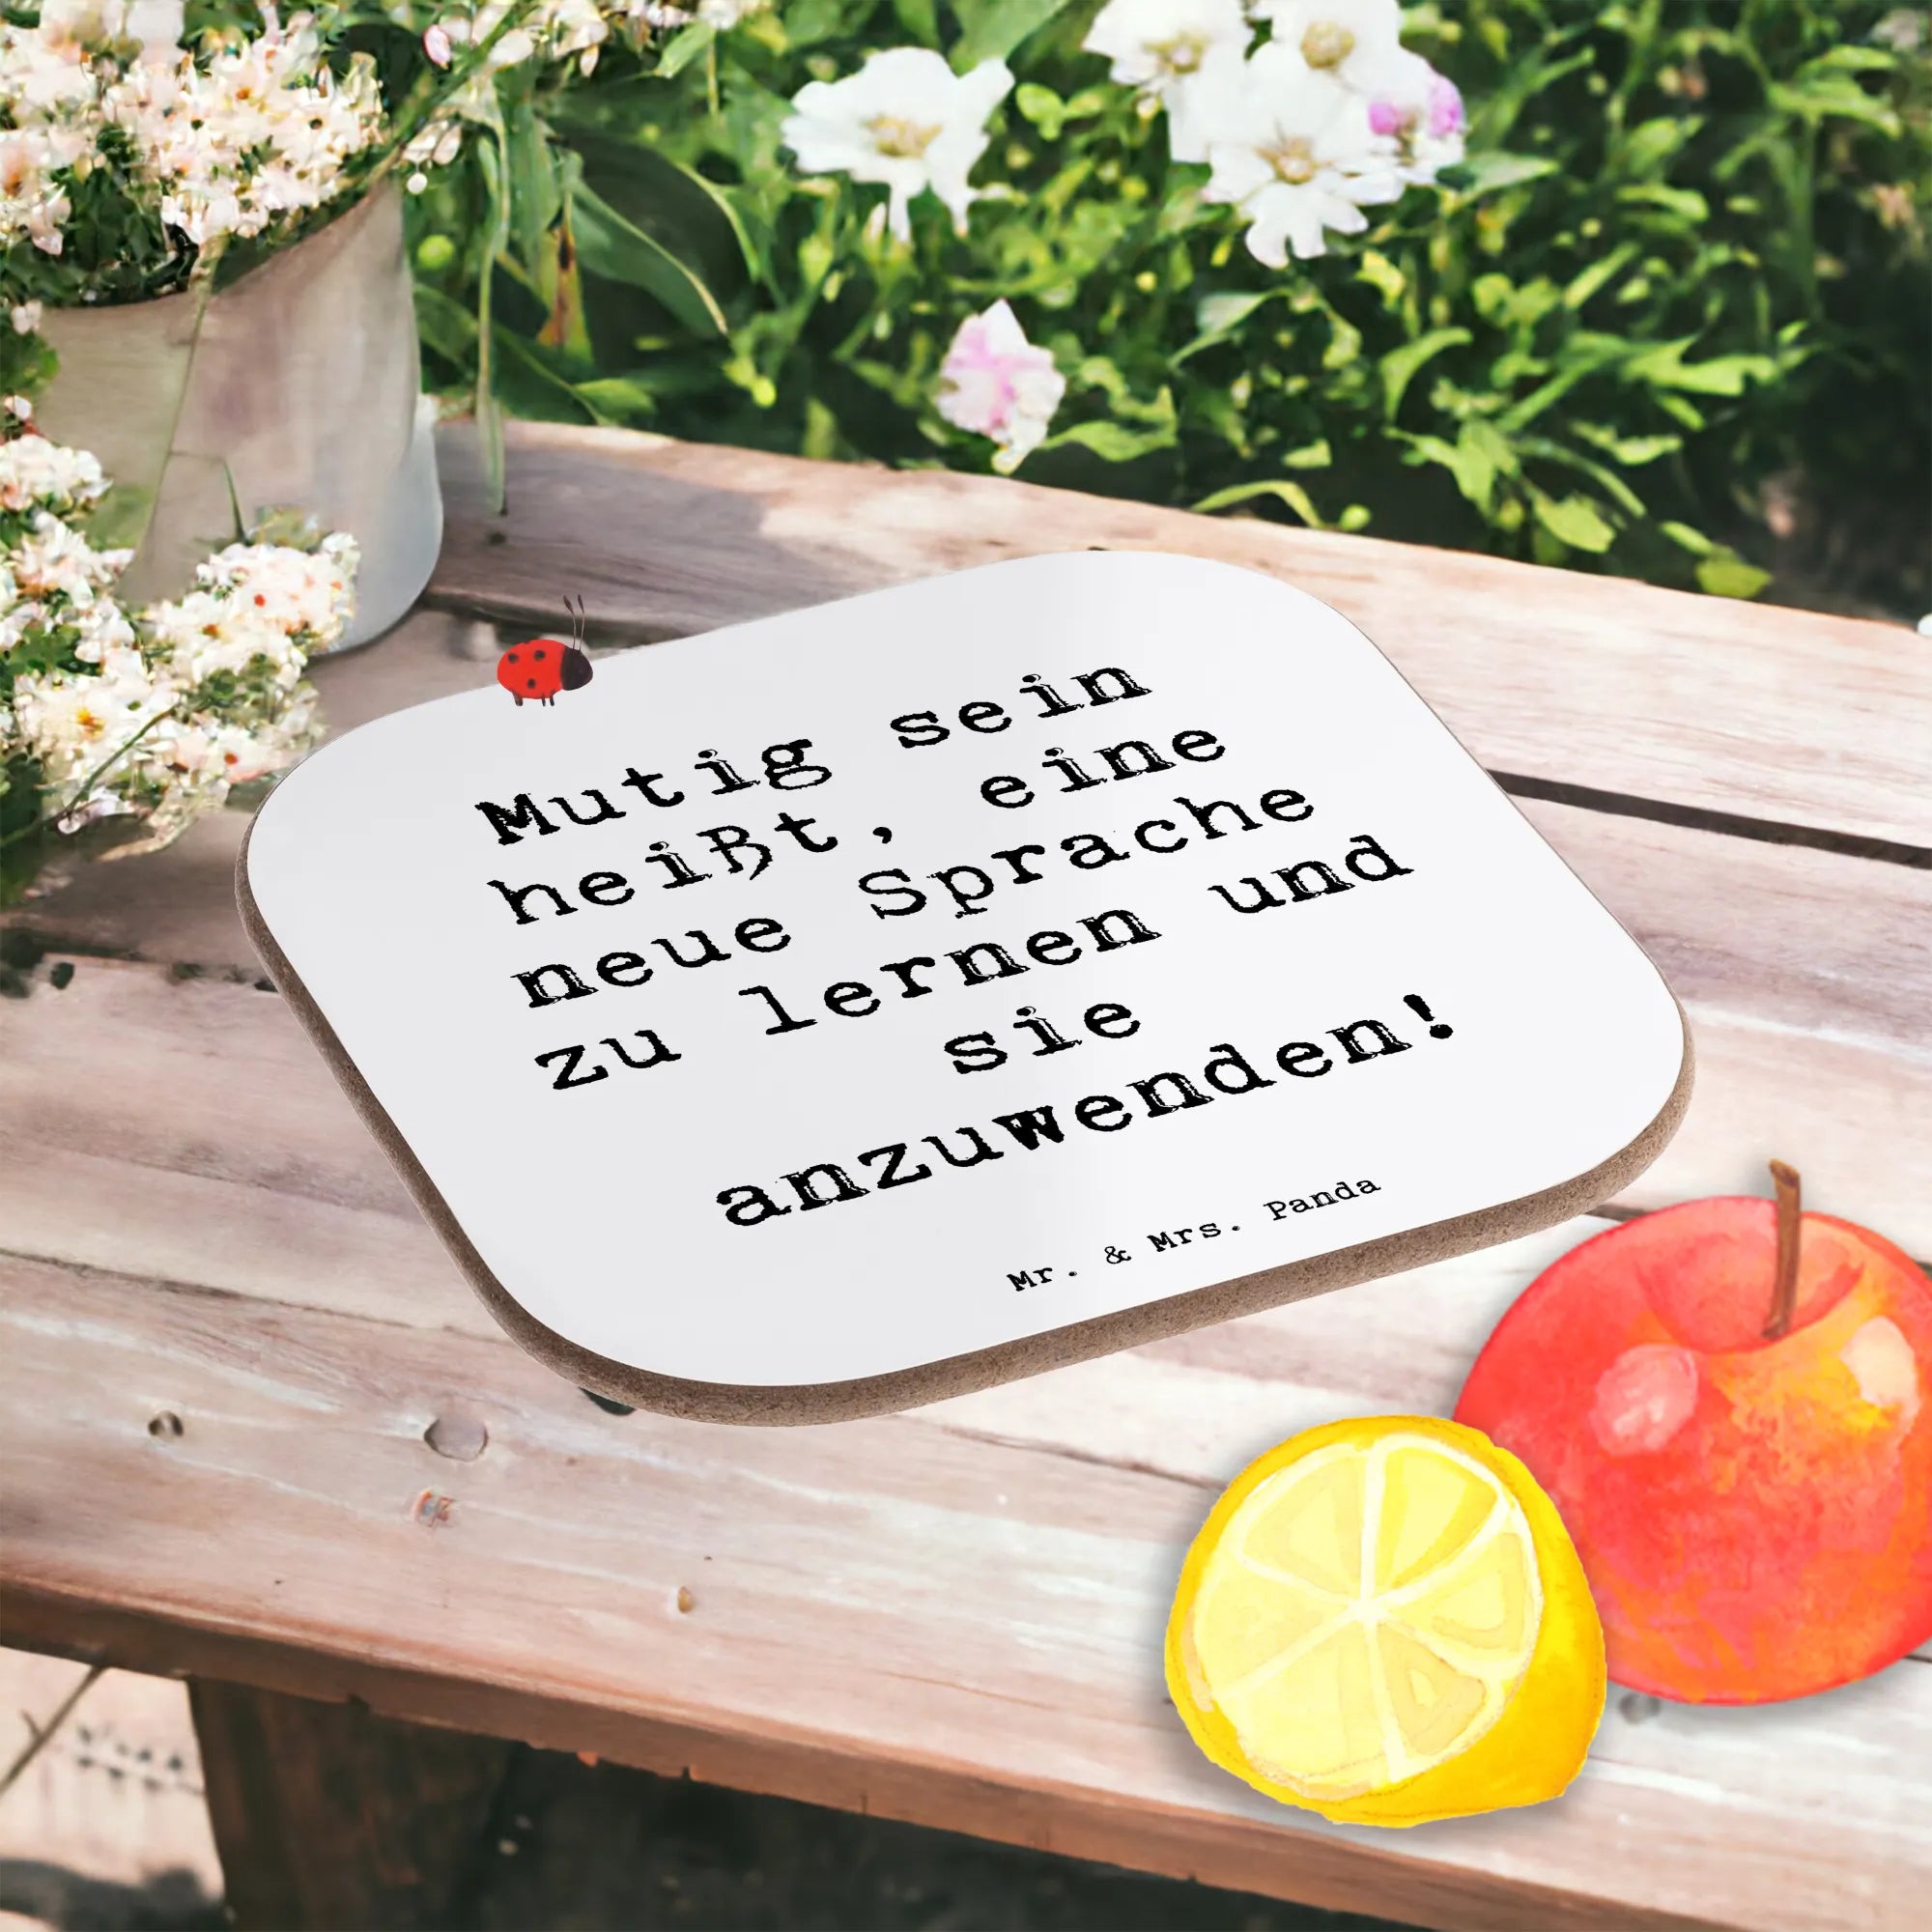 Mutig sein
heißt, eine
neue Sprache
zu lernen und
sie
anzuwenden!
Mr. & Mrs. Panda